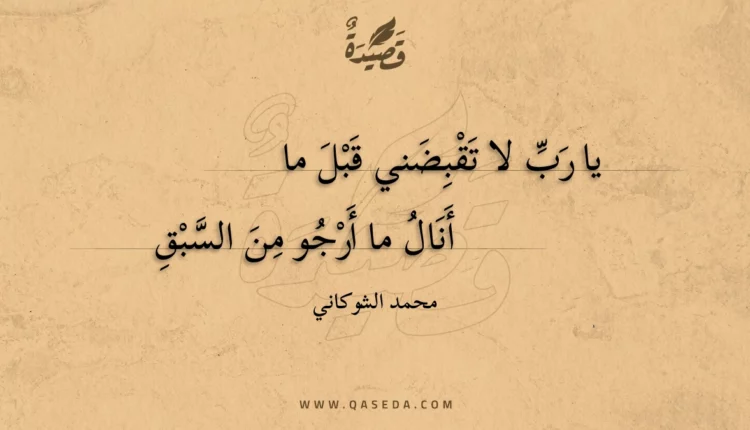 قَصِيْدَةٌ
يا رَبِّ لا تَقْبِضَني قَبْلَ ما
أَنَالُ ما أَرْجُو مِنَ السَّبْقِ
محمد الشوكاني
WWW.QASEDA.COM